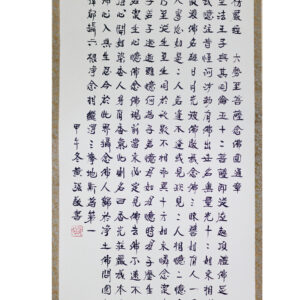 楞嚴經 大勢至菩薩念佛圓通章
至法王子與其同倫五十二菩薩即從座起頂禮佛足
我憶往昔恒河沙劫有佛出世名無量光十二如來相繼
後佛名超日月光彼佛教我念佛三昧譬如有人一
人專忘如是二人若逢不逢或見非見二人相憶二憶
乃至從生至生同於形影不相乖異十方如來憐念眾
若子逃逝雖憶何為子若憶母如母憶時母子歷生
若眾生心憶佛念佛現前當來必定見佛去佛不遠不
心開如染香人身有香氣此則名曰香光莊嚴我本
心入無生忍今於此界攝念佛人歸於淨土佛問圓
擇都攝六根淨念相繼得三摩地斯為第一
甲午冬黃敬書